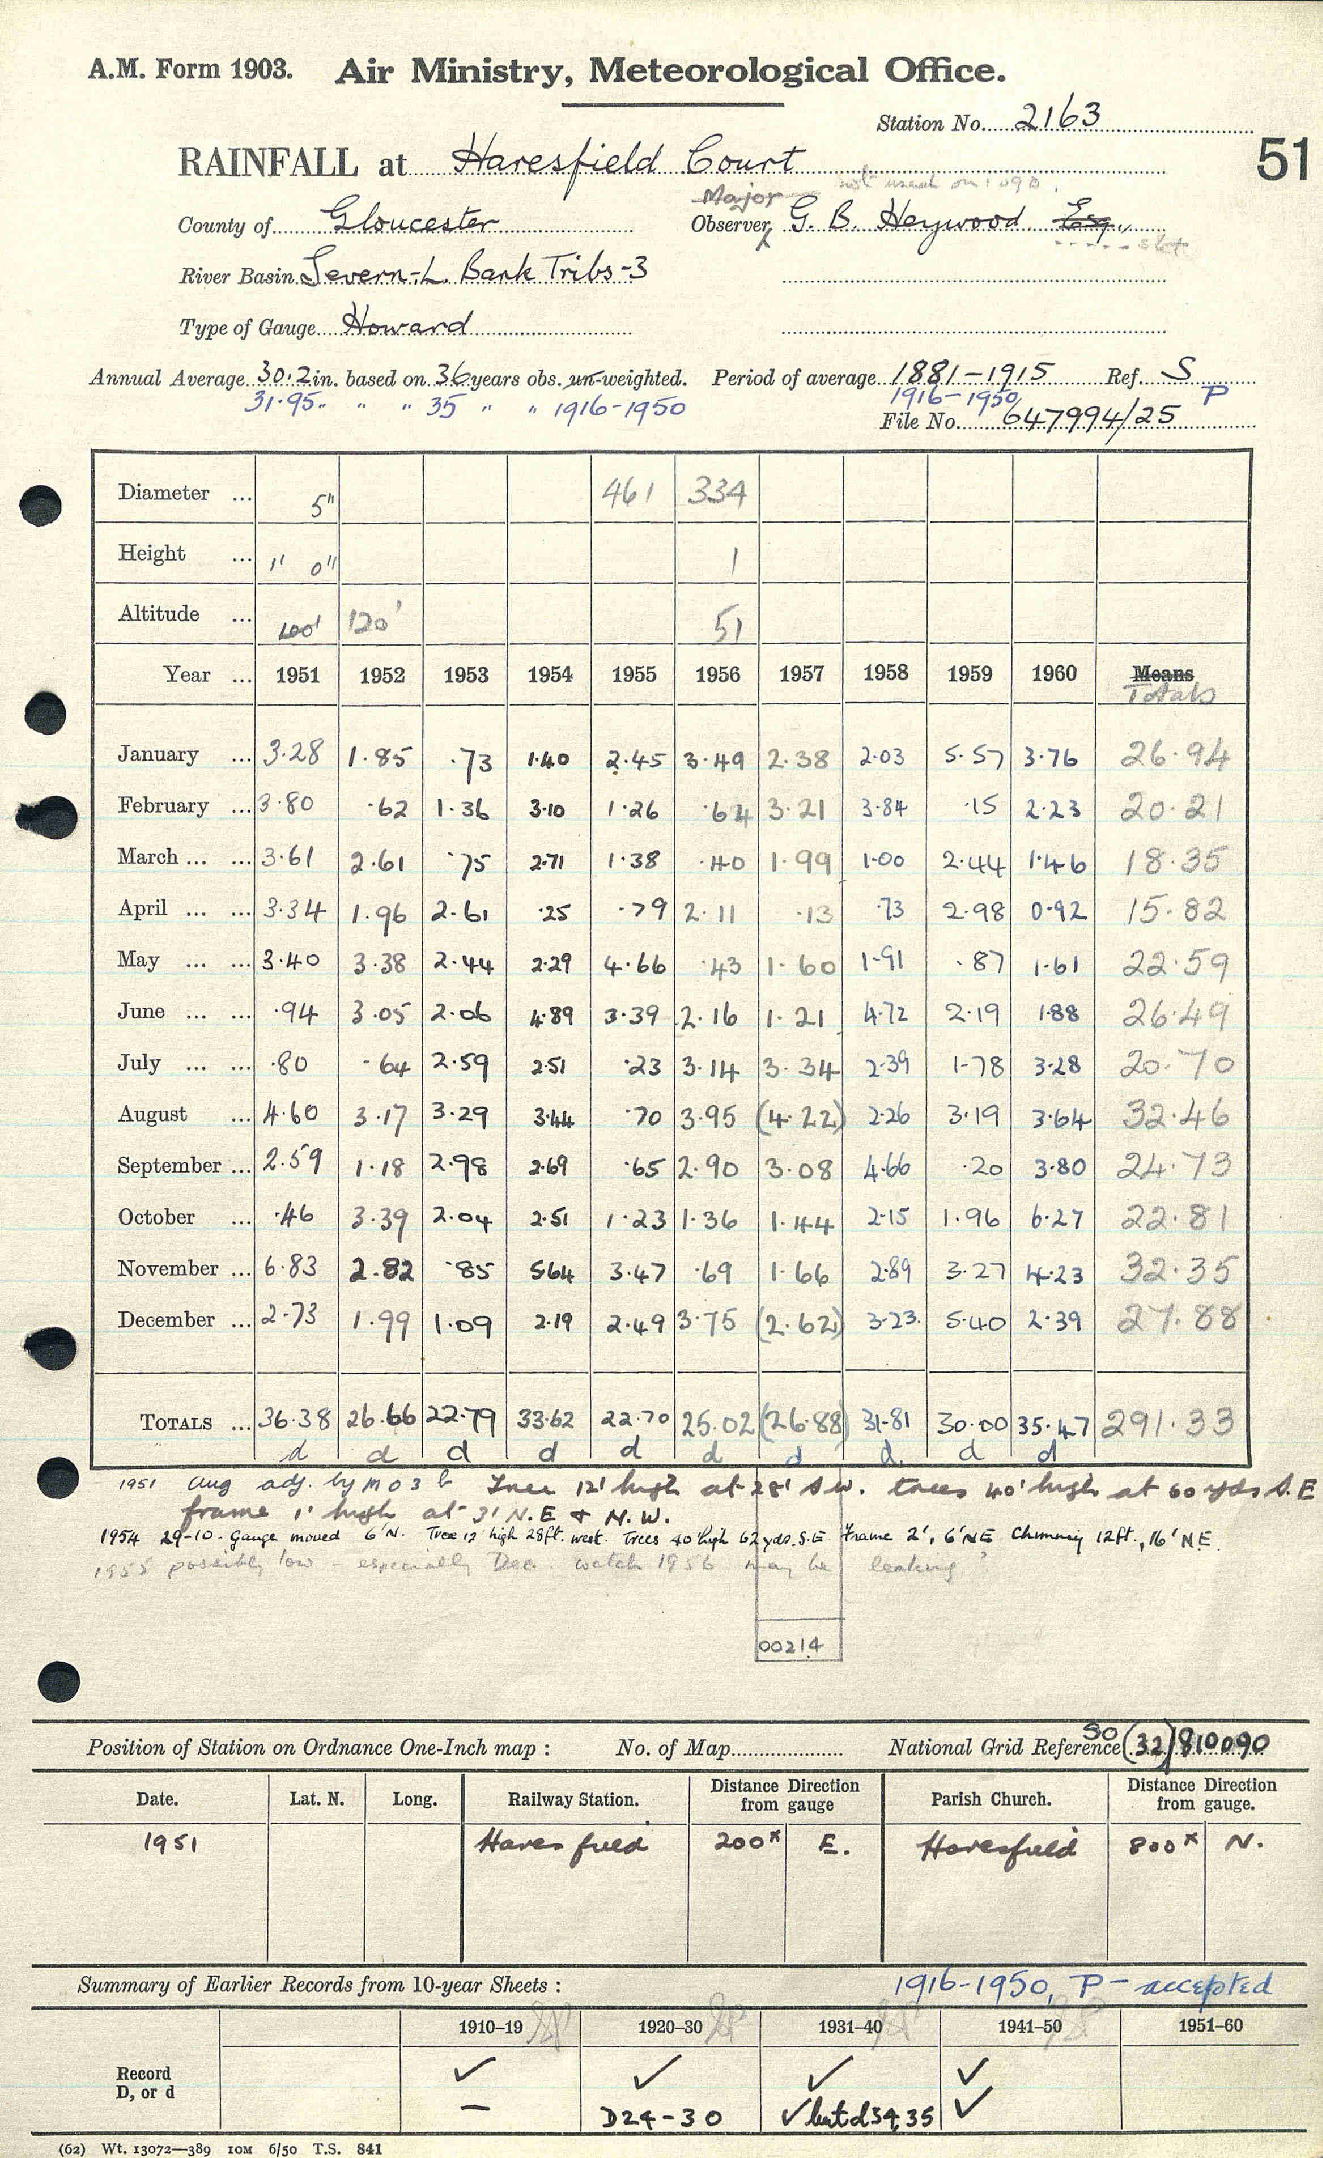 A.M. Form 1903. Air Ministry, Meteorological Office.
Station No. 2163
51
RAINFALL at Haresfield Court
not used on
Major
County of Gloucester Observer G. B. Heywood Esq.
River Basin Severn-L. Bank Tribs-3
Type of Gauge Howard
Annual Average 30.2 in. based on 36 years obs. un-weighted. Period of average 1881-1915 Ref. S
31.95 " " " 35 " " 1916-1950 1916-1950 P
File No. 647994/25
Diameter ... 5" 461 334
Height ... 1' 0" 1
Altitude ... 100' 120' 51
Year ... 1951 1952 1953 1954 1955 1956 1957 1958 1959 1960 Means
Totals
January ... 3.28 1.85 .73 1.40 2.45 3.49 2.38 2.03 5.57 3.76 26.94
February ... 3.80 .62 1.36 3.10 1.26 .64 3.21 3.84 .15 2.23 20.21
March ... ... 3.61 2.61 .75 2.71 1.38 .40 1.99 1.00 2.44 1.46 18.35
April ... ... 3.34 1.96 2.61 .25 .79 2.11 .13 .73 2.98 0.92 15.82
May ... ... 3.40 3.38 2.44 2.29 4.66 .43 1.60 1.91 .87 1.61 22.59
June ... ... .94 3.05 2.06 4.89 3.39 2.16 1.21 4.72 2.19 1.88 26.49
July ... ... .80 .64 2.59 2.51 .23 3.14 3.34 2.39 1.78 3.28 20.70
August ... 4.60 3.17 3.29 3.44 .70 3.95 (4.22) 2.26 3.19 3.64 32.46
September ... 2.59 1.18 2.98 2.69 .65 2.90 3.08 4.66 .20 3.80 24.73
October ... .46 3.39 2.04 2.51 1.23 1.36 1.44 2.15 1.96 6.27 22.81
November ... 6.83 2.82 .85 5.64 3.47 .69 1.66 2.89 3.27 4.23 32.35
December ... 2.73 1.99 1.09 2.19 2.49 3.75 (2.62) 3.23 5.40 2.39 27.88
TOTALS ... 36.38 26.66 22.79 33.62 22.70 25.02 (26.88) 31.81 30.00 35.47 291.33
d d d d d d d d d d
1951 Aug adj. by M O 3 b Tree 12' high at 28' S.W. trees 40' high at 60 yds S.E
frame 1' high at 3' N.E & N.W.
1954 29-10. Gauge moved 6'N. Tree 12' high 28ft. west. Trees 40' high 62 yds. S.E Frame 2', 6'NE Chimney 12ft., 16'N.E.
1955 possibly low - especially Dec. watch 1956 may be leaking?
00214
Position of Station on Ordnance One-Inch map : No. of Map National Grid Reference SO (32) 810090
Date. Lat. N. Long. Railway Station. Distance Direction from gauge Parish Church. Distance Direction from gauge.
1951 Haresfield 200x E. Haresfield 800x N.
Summary of Earlier Records from 10-year Sheets : 1916-1950, P - accepted
1910-19 1920-30 1931-40 1941-50 1951-60
Record ✓ ✓ ✓ ✓
D, or d – D24-30 ✓ but d34,35 ✓
(62) Wt. 13072—389 10M 6/50 T.S. 841